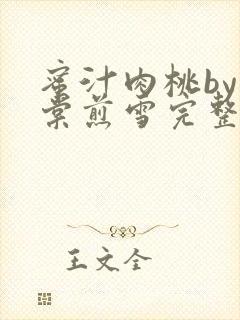 蜜汁肉桃by
棠煎雪完整
王文全